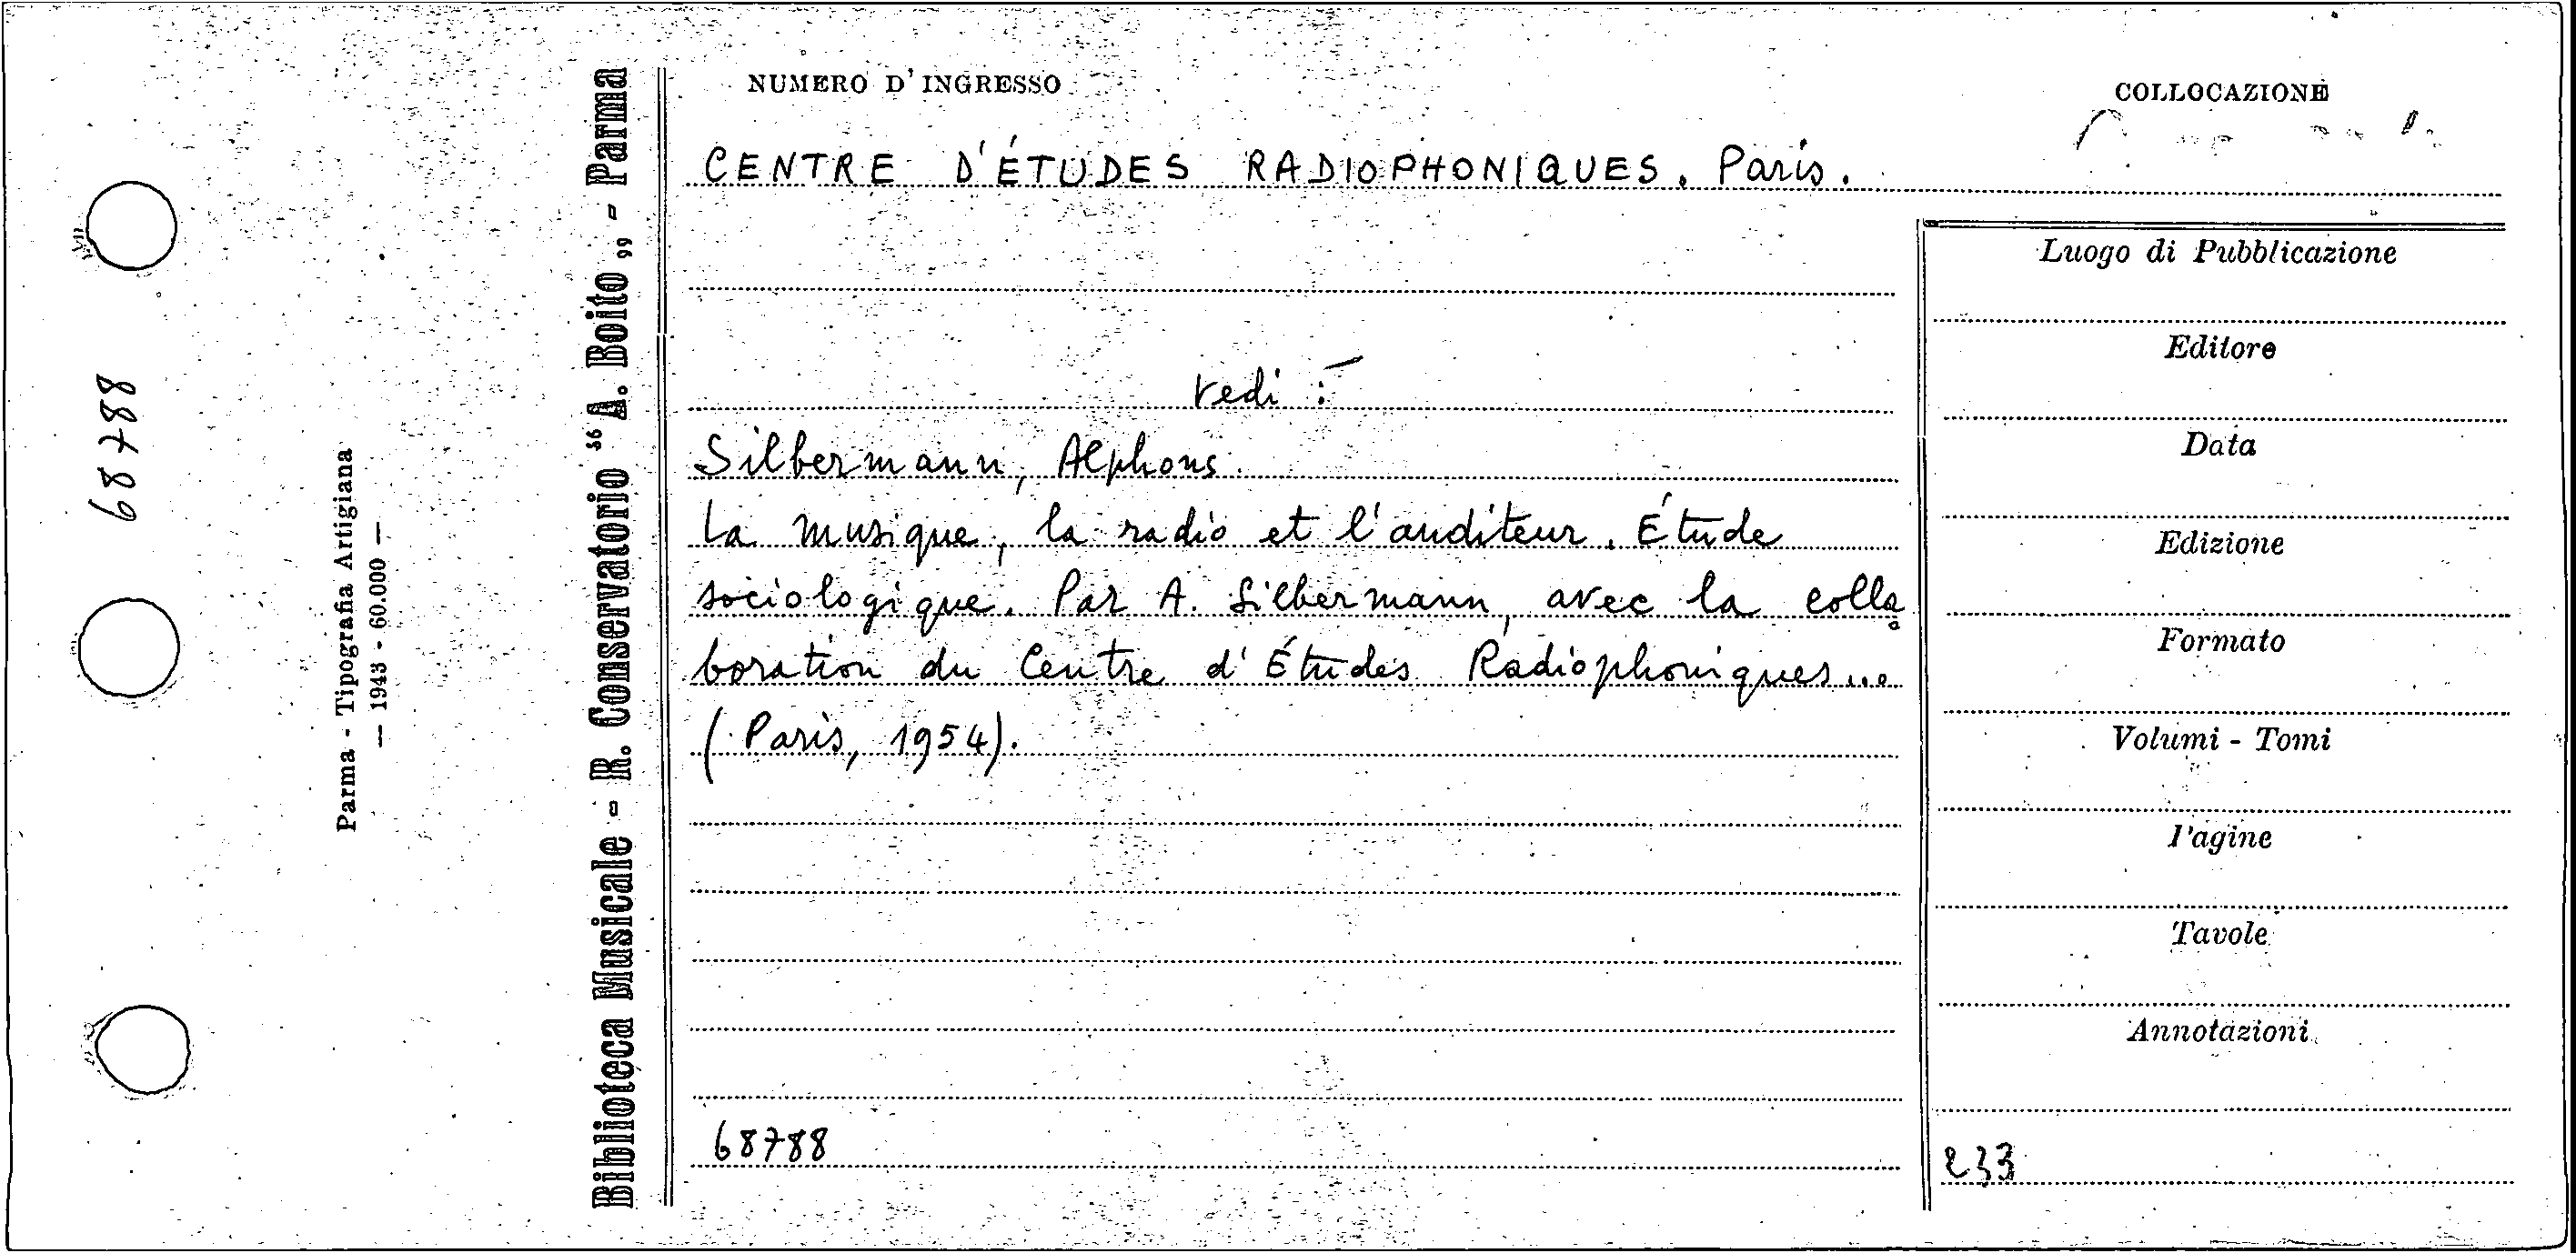 68788
Parma - Tipografia Artigiana
— 1943 - 60.000 —
Biblioteca Musicale - R. Conservatorio “A. Boito„ - Parma
NUMERO D'INGRESSO
COLLOCAZIONE
CENTRE D'ÉTUDES RADIOPHONIQUES. Paris.
vedi :
Silbermann, Alphons
La musique, la radio et l'auditeur. Étude
sociologique. Par A. Silbermann, avec la colla
boration du Centre d'Études Radiophoniques...
(Paris, 1954).
68788
Luogo di Pubblicazione
Editore
Data
Edizione
Formato
Volumi - Tomi
Pagine
Tavole
Annotazioni
233